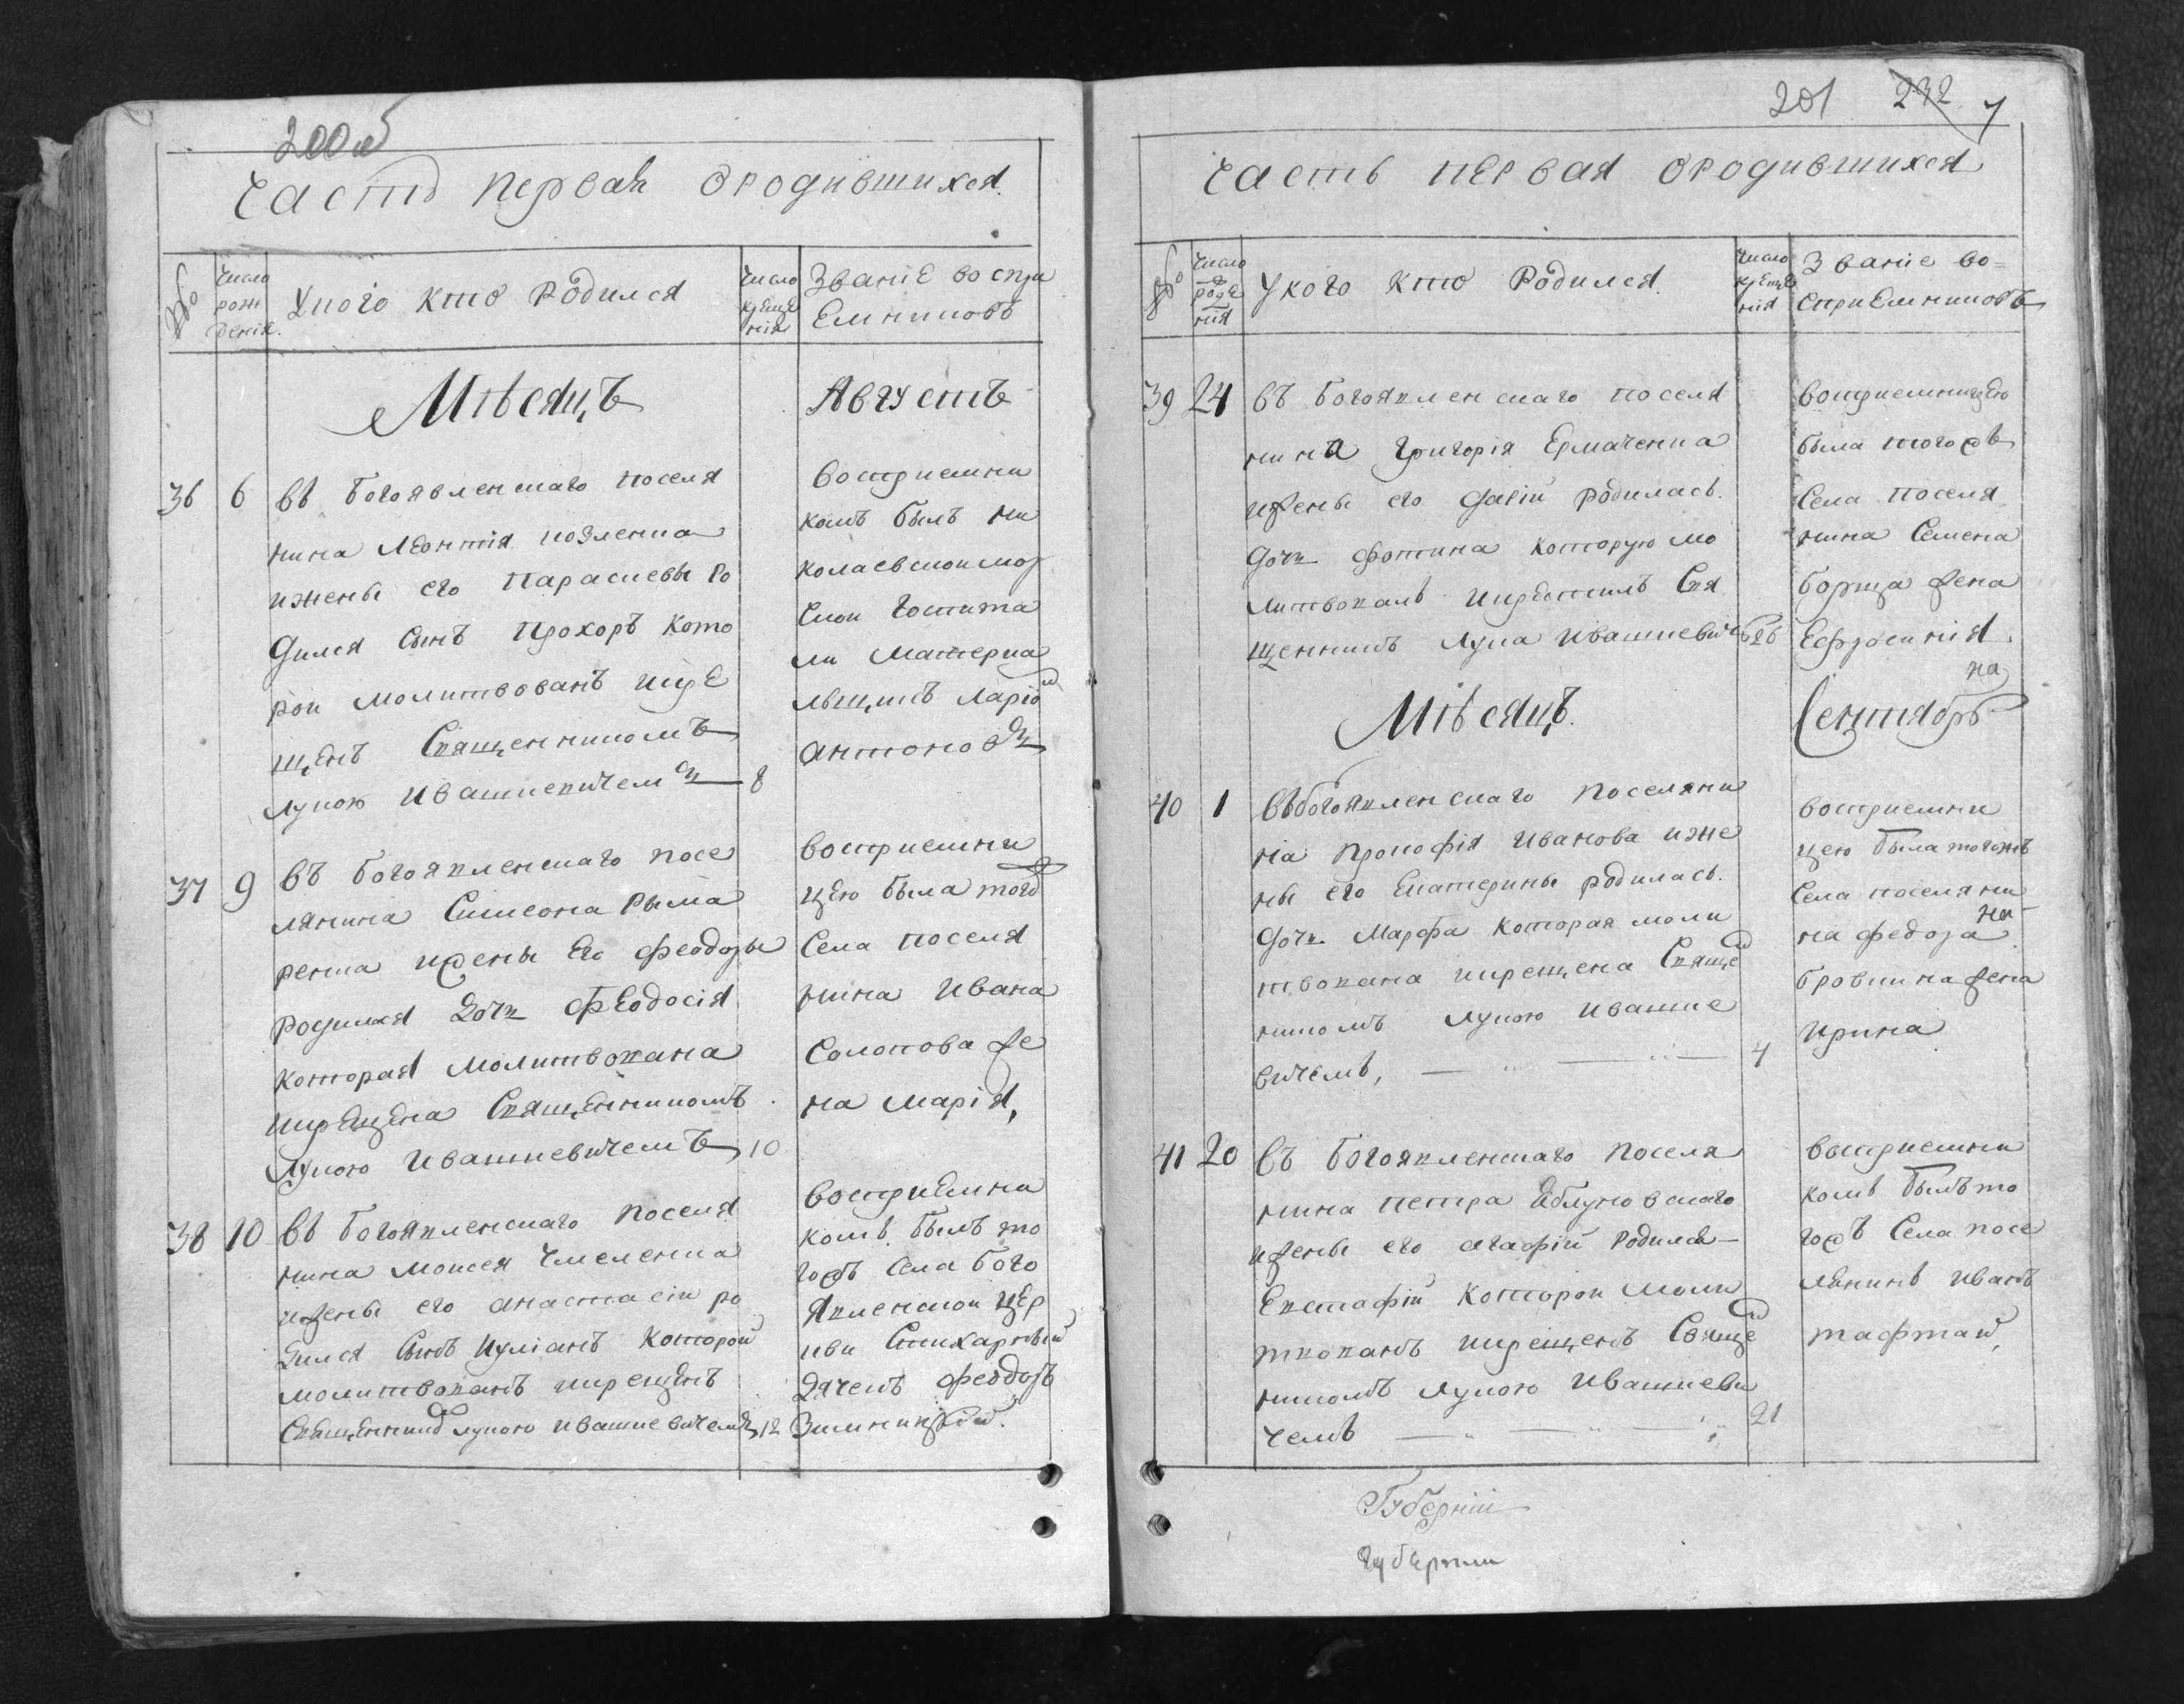 200 об
Часть первая ородившихся.
№ Число рождения. Укого кто Родился Число крещения Званіе воспри
Емниковъ
Мѣсяцъ Августъ
36 6 Въ Богоявленскаго поселя
нина Леонтія козленка
ижены его Параскевы Ро
дился Сынъ Прохоръ кото
рои молитвованъ икре
щенъ Священникомъ
лукою Ивашкевичемъ 8
восприемни
комъ былъ ни
колаевскои мор
скои Гошпита
ли Материа
льщикъ Ларіо
антоновъ
37 9 Въ Богоявленскаго посе
лянина Симеона Рыма
ренка ижены Его Феодоры
родилася Дочь Феодосія
которая молитвована
икрещена Священникомъ
Лукою Ивашкевичемъ 10
восприемни
цею была тогож
Села поселя
нина Ивана
Солопова же
на Марія,
38 10 Въ Богоявленскаго поселя
нина Моисея Чмеленка
ижены его анастасіи ро
дился Сынъ Иуліанъ Которой
молитвованъ икрещенъ
Священнико лукою Ивашкевичемъ 12
восприемни
комъ былъ то
гожъ Села Бого
Явленскои цер
кви Стихарный
Дячекъ Феодоръ
Зимницкій.
201 232 7
Часть первая ородившихся
№ Число рождения Укого кто Родился. Число крещения Званіе во=
сприемниковъ
39 24 Въ Богоявленскаго поселя
нина Григорія Ермаченка
ижены его Даріи родилась.
Дочь Фотина которую мо
литвовалъ икрестилъ Свя
щенникъ Лука Ивашкевичъ 26
восприемницею
была тогожъ
Села поселя
нина Семена
борща жена
Ефросинія.
Мѣсяцъ. Сентябрь
40 1 Въбогоявленскаго поселяни
на Прокофія Иванова иже
ны его Екатерины родилась.
Дочь Марфа Которая моли
твована икрещена Свяще
никомъ Лукою Ивашке
вичемъ, — " — " — 4
восприемни
цею была тогожъ
Села поселяни
на федора
бровкина жена
Ирина
41 20 Въ Богоявленскаго поселя
нина петра Яблуновскаго
ижены его агафіи Родился—
Евстафій Которои Моли
твованъ икрещенъ Свяще
никомъ Лукою Ивашкеви
чемъ — " — " — " 21
восприемни
комъ былъ то
гожъ Села посе
лянинъ Иванъ
тафтай,
Губерніи
губерніи